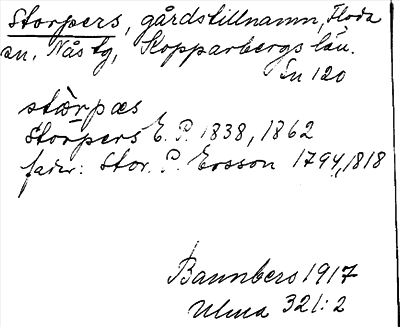 Storpers, gårdstillnamn, Floda
sn. Nås tg, Kopparbergs län.
Ln 120
stɷ̀rpæs
Storpers E. P. 1838, 1862
fader: Stor. P. Ersson 1794, 1818
Bannbers 1917
Ulma 321:2